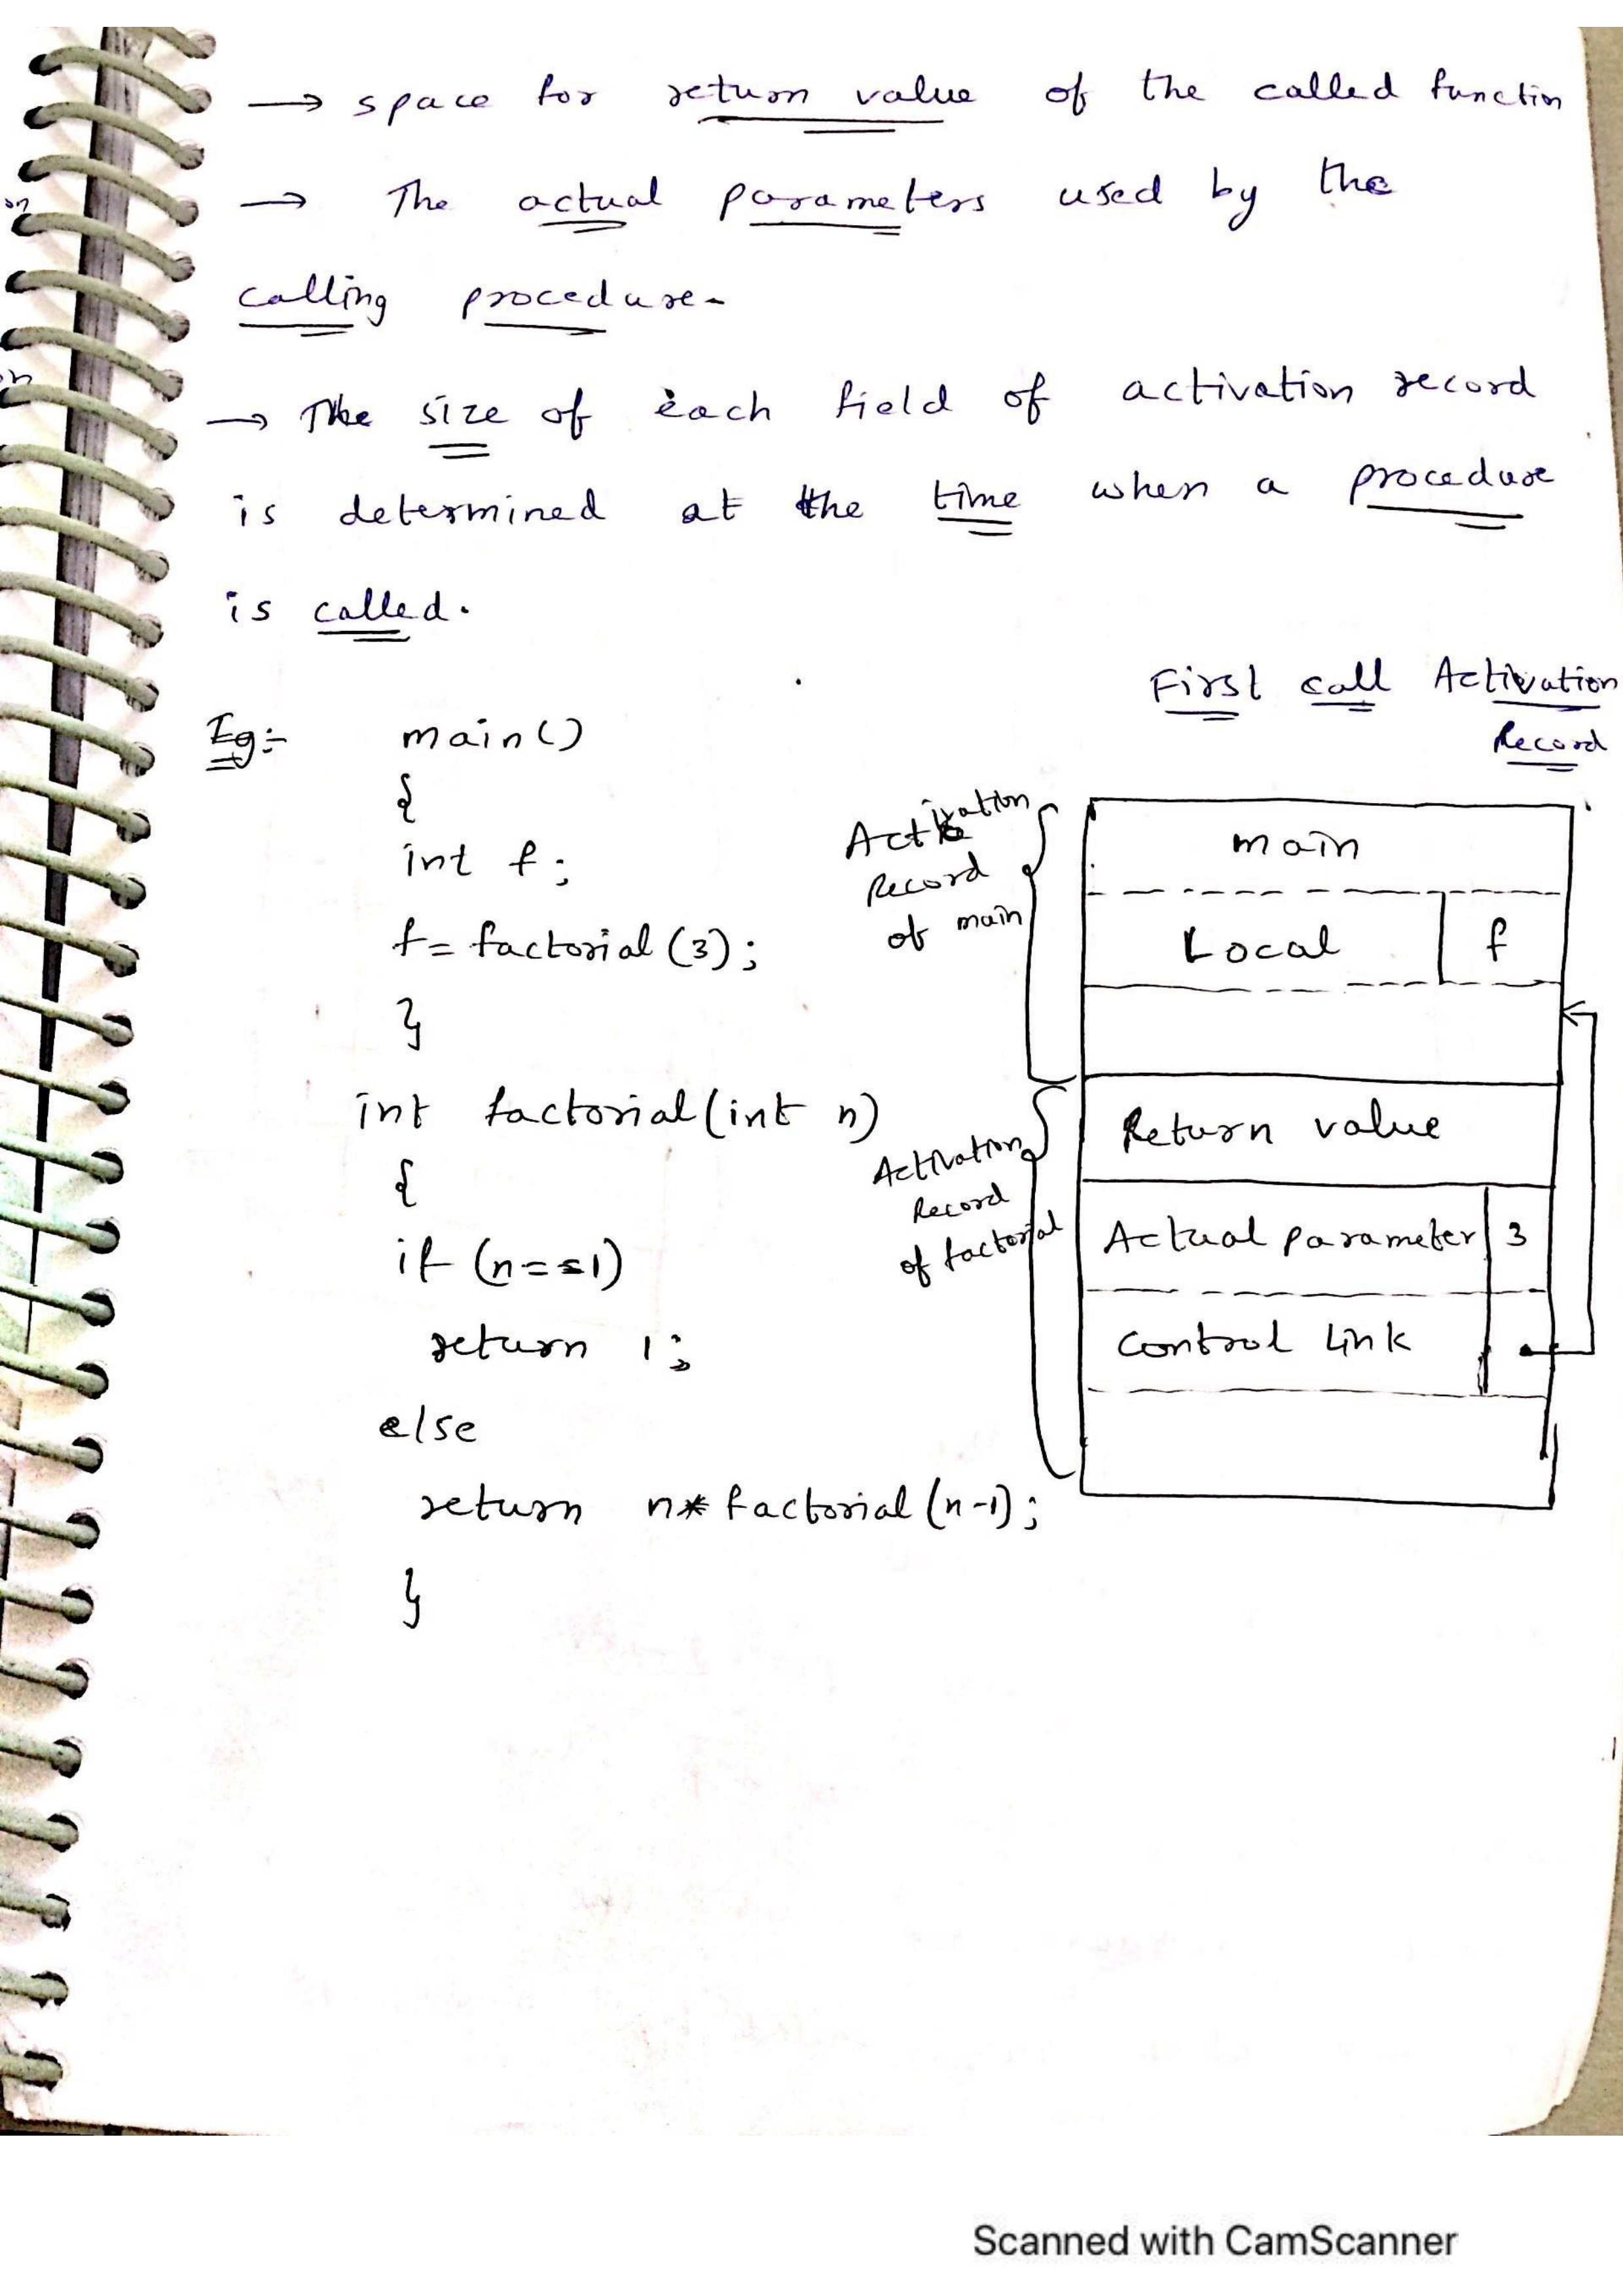 → space for return value of the called functin
→ The actual parameters used by the
calling procedure.
→ The size of each field of activation record
is determined at the time when a procedure
is called.
Eg:-
main()
{
int f;
f = factorial (3);
}
int factorial (int n)
{
if (n==1)
return 1;
else
return n* factorial (n-1);
}
First call Activation
Record
Activation
Record
of main
main
Local f
Activation
Record
of factorial
Return value
Actual parameter 3
Control Link
Scanned with CamScanner